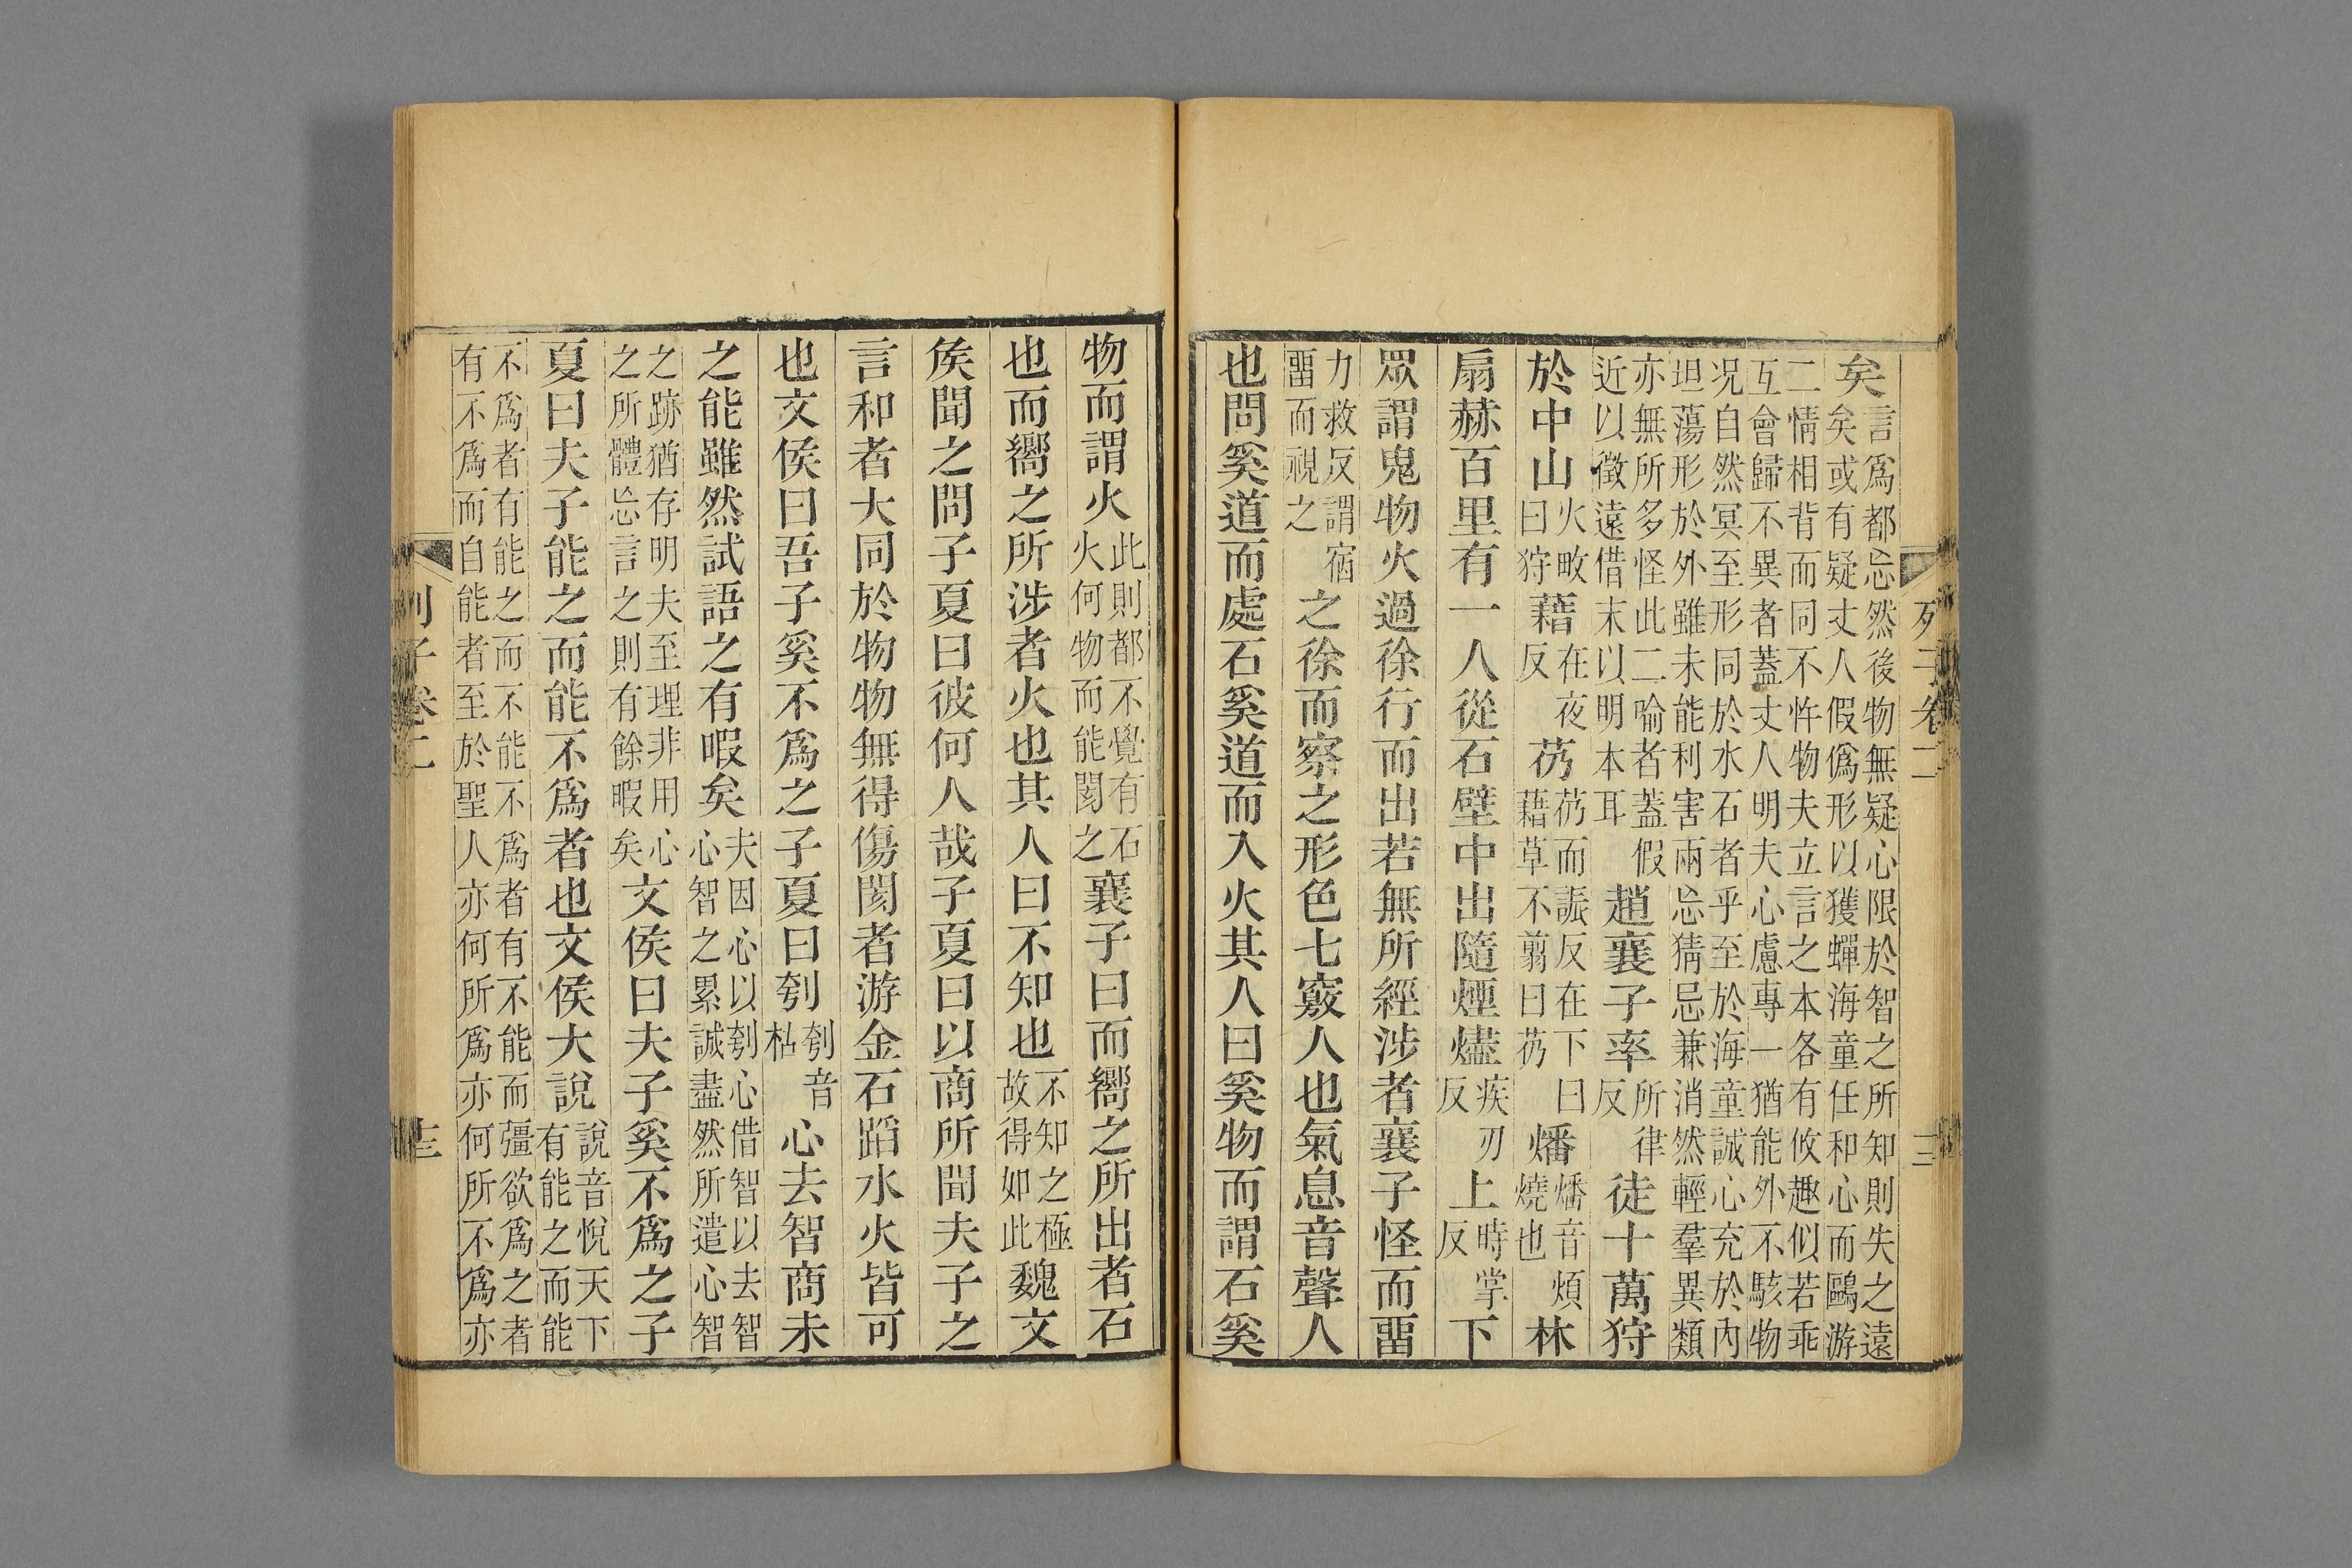 列子卷二
三
矣言爲都忘然後物無疑心限於智之所知則失之遠矣或有疑丈人假僞形以獲蟬海童任和心而鷗游
二情相背而同不忤物夫立言之本各有攸趣似若乖互會歸不異者蓋丈人明夫心慮專一猶能外不駭物
况自然冥至形同於水石者乎至於海童誠心充於內坦蕩形於外雖未能利害兩忘猜忌兼消然輕羣異類
亦無所多怪此二喻者蓋假近以徵遠借末以明本耳趙襄子率所律反徒十萬狩
於中山火畋曰狩藉在夜反芿芿而誫反在下曰藉草不翦曰芿燔燔音煩燒也林
扇赫百里有一人從石壁中出隨煙燼疾刃反上時掌反下
眾謂鬼物火過徐行而出若無所經涉者襄子怪而畱
力救反謂宿畱而視之之徐而察之形色七竅人也氣息音聲人
也問奚道而處石奚道而入火其人曰奚物而謂石奚
物而謂火此則都不覺有石火何物而能閡之襄子曰而嚮之所出者石
也而嚮之所涉者火也其人曰不知也不知之極故得如此魏文
矦聞之問子夏曰彼何人哉子夏曰以商所聞夫子之
言和者大同於物物無得傷閡者游金石蹈水火皆可
也文侯曰吾子奚不爲之子夏曰刳刳音枯心去智商未
之能雖然試語之有暇矣夫因心以刳心借智以去智心智之累誠盡然所遣心智
之跡猶存明夫至理非用心之所體忘言之則有餘暇矣文侯曰夫子奚不爲之子
夏曰夫子能之而能不爲者也文侯大說說音悅天下有能之而能
不爲者有能之而不能不爲者有不能而彊欲爲之者有不爲而自能者至於聖人亦何所爲亦何所不爲亦
列子卷二